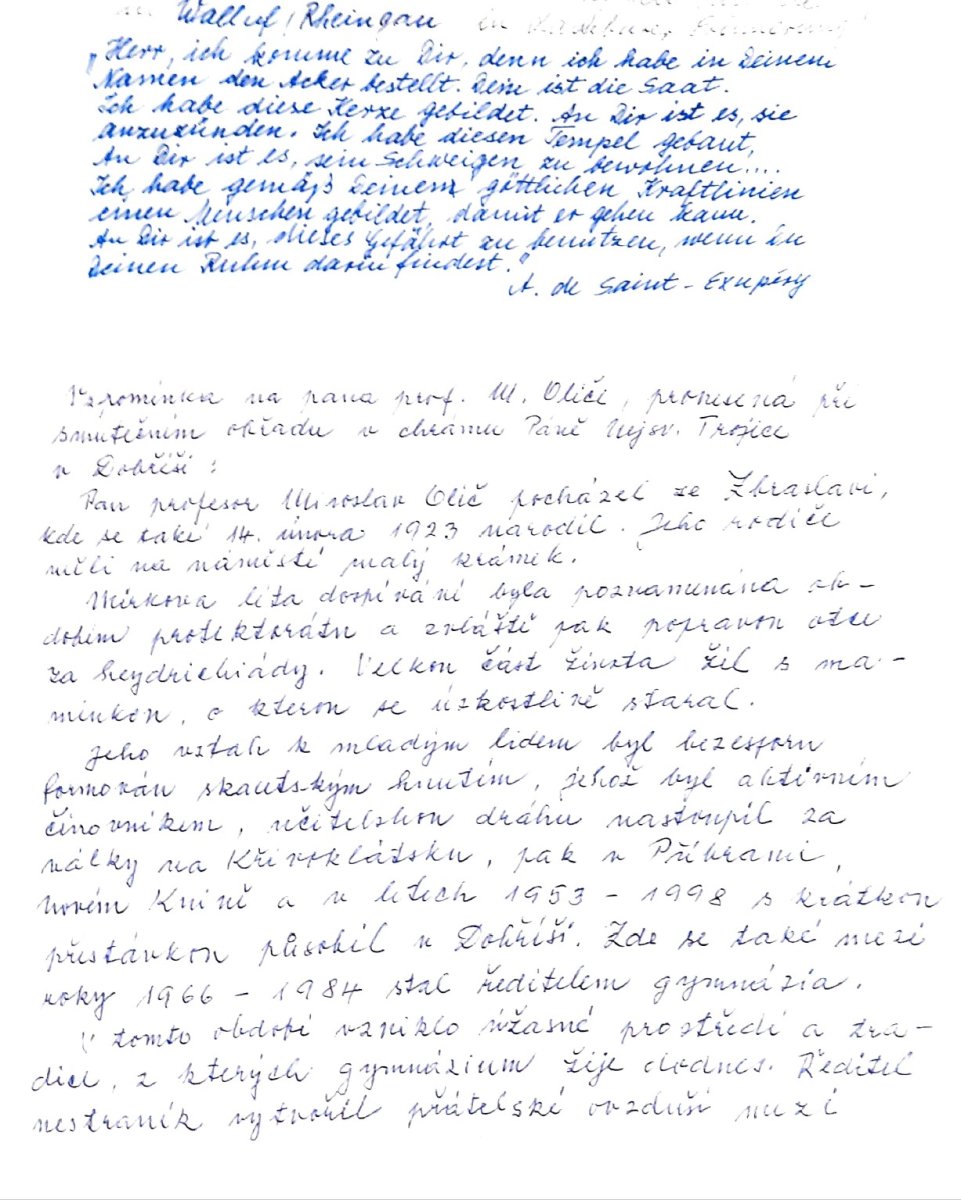 Walluf / Rheingau in
„Herr, ich komme zu Dir, denn ich habe in Deinem
Namen den Acker bestellt. Dein ist die Saat.
Ich habe diese Kerze gebildet. An Dir ist es, sie
anzuzünden. Ich habe diesen Tempel gebaut,
An Dir ist es, sein Schweigen zu bewohnen....
Ich habe gemäß Deinem göttlichen Kraftlinien
einen Menschen gebildet, damit er gehen kann.
An Dir ist es, dieses Gefährt zu benützen, wenn Du
Deinen Ruhm darin findest."
A. de Saint-Exupéry
Vzpomínka na pana prof. M. Oliče, pronesená při
smutečním obřadu v chrámu Páně Nejsv. Trojice
v Dobříši:
Pan profesor Miroslav Olič pocházel ze Zbraslavi,
kde se také 14. února 1923 narodil. Jeho rodiče
měli na náměstí malý krámek.
Mirkova léta dospívání byla poznamenána ob-
dobím protektorátu a zvláště pak popravou otce
za heydrichiády. Velkou část života žil s ma-
minkou, o kterou se úzkostlivě staral.
Jeho vztah k mladým lidem byl bezesporu
formován skautským hnutím, jehož byl aktivním
činovníkem, učitelskou dráhu nastoupil za
války na Křivoklátsku, pak v Příbrami,
Novém Kníně a v letech 1953 - 1998 s krátkou
přestávkou působil v Dobříši. Zde se také mezi
roky 1966 - 1984 stal ředitelem gymnázia.
V tomto období vzniklo úžasné prostředí a tra-
dice, z kterých gymnázium žije dodnes. Ředitel
nestraník vytvořil přátelské ovzduší mezi